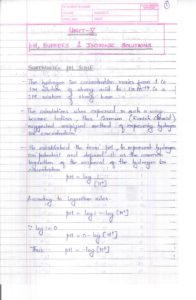 UNIT-V
pH, BUFFERS & ISOTONIC SOLUTIONS
SORENSEN'S pH SCALE
The hydrogen ion concentration varies from 1 in
1M solution of strong acid to 1X10⁻¹⁴ in a
1M solution of strong base
The calculations when expressed in such a way
become tedious, thus Sorensen
suggested simplified method of expressing hydrogen
ion concentration
He established the term pH, to represent hydrogen
ion potential and defined it as the common
logarithm of the reciprocal of the hydrogen ion
concentration
pH = log 1
[H⁺]
According to logarithm rules
pH = log 1 - log [H⁺]
∵ log 1 = 0
pH = 0 - log [H⁺]
Thus pH = - log [H⁺]